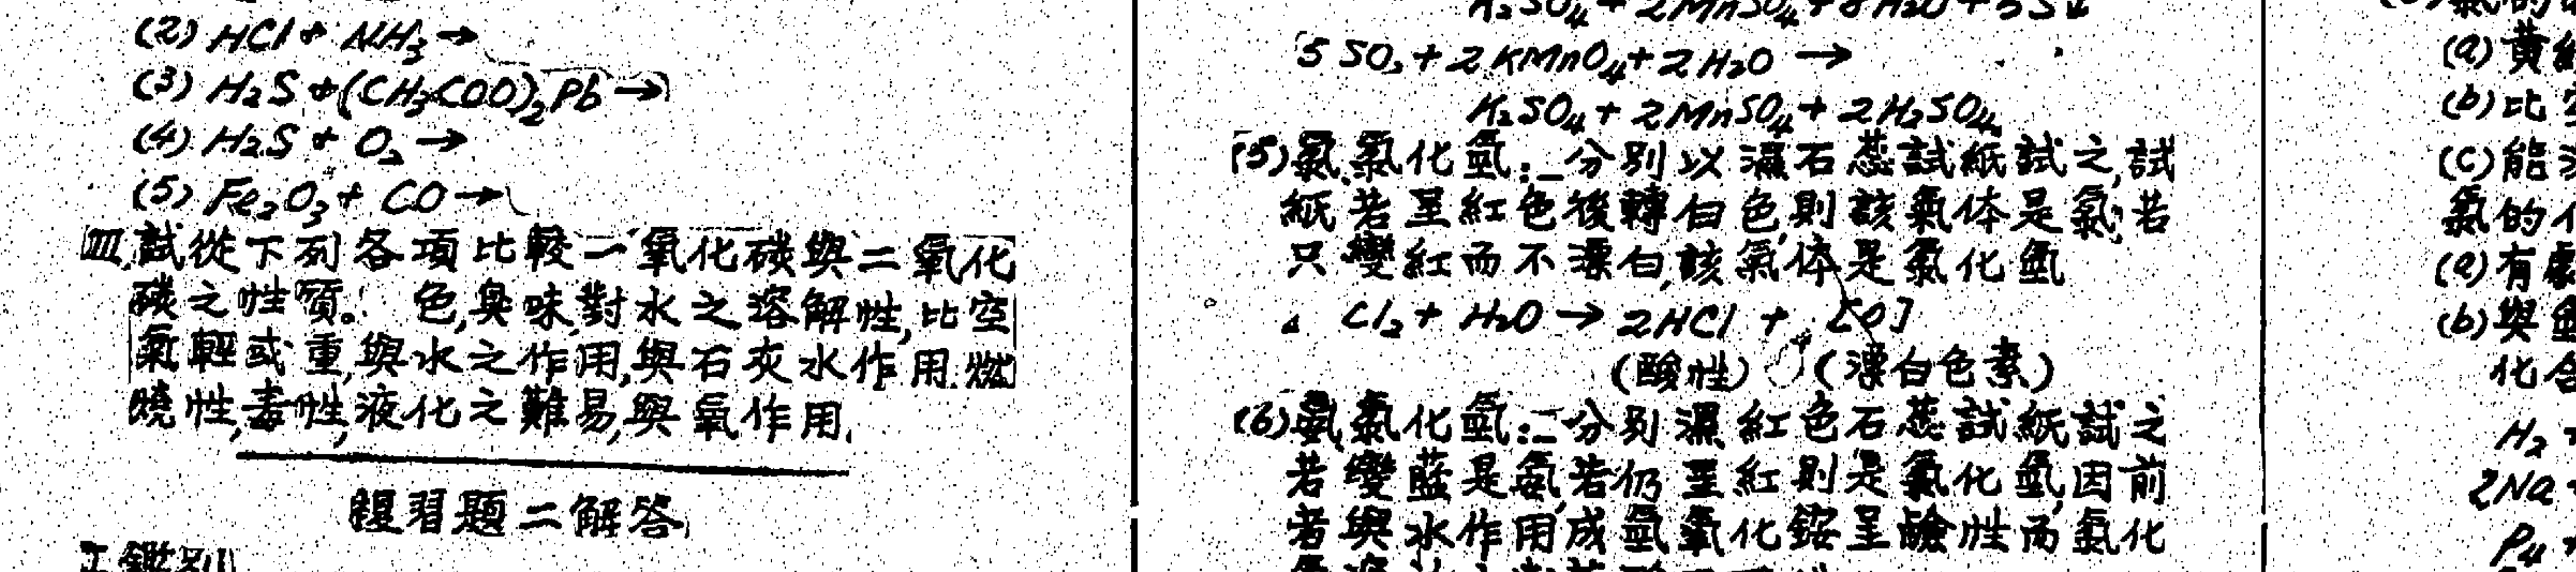 (2) HCl + NH₃ →
(3) H₂S + (CH₃COO)₂Pb →
(4) H₂S + O₂ →
(5) Fe₂O₃ + CO →
III.試從下列各項比較一氧化碳與二氧化
碳之性質。 色,臭味,對水之溶解性,比空
氣輕或重,與水之作用,與石灰水作用.燃
燒性,毒性,液化之難易,與氧作用.
複習題二解答
I.鑑別
K₂SO₄ + 2MnSO₄ + 8H₂O + 5S↓
5SO₂ + 2KMnO₄ + 2H₂O →
K₂SO₄ + 2MnSO₄ + 2H₂SO₄
(5)氯,氯化氫:—分別以濕石蕊試紙試之,試
紙若呈紅色後轉白色,則該氣体是氯;若
只變紅而不漂白,該氣体是氯化氫
Cl₂ + H₂O → 2HCl + [O]
(酸性) (漂白色素)
(6)氨,氯化氫:—分別濕紅色石蕊試紙試之
若變藍是氨,若仍呈紅則是氯化氫,因前
者與水作用,成氫氧化銨呈鹼性而氯化
(a)黃
(b)比空
(c)能
氯的
(a)有
(b)與
化合
H₂
2Na
P₄